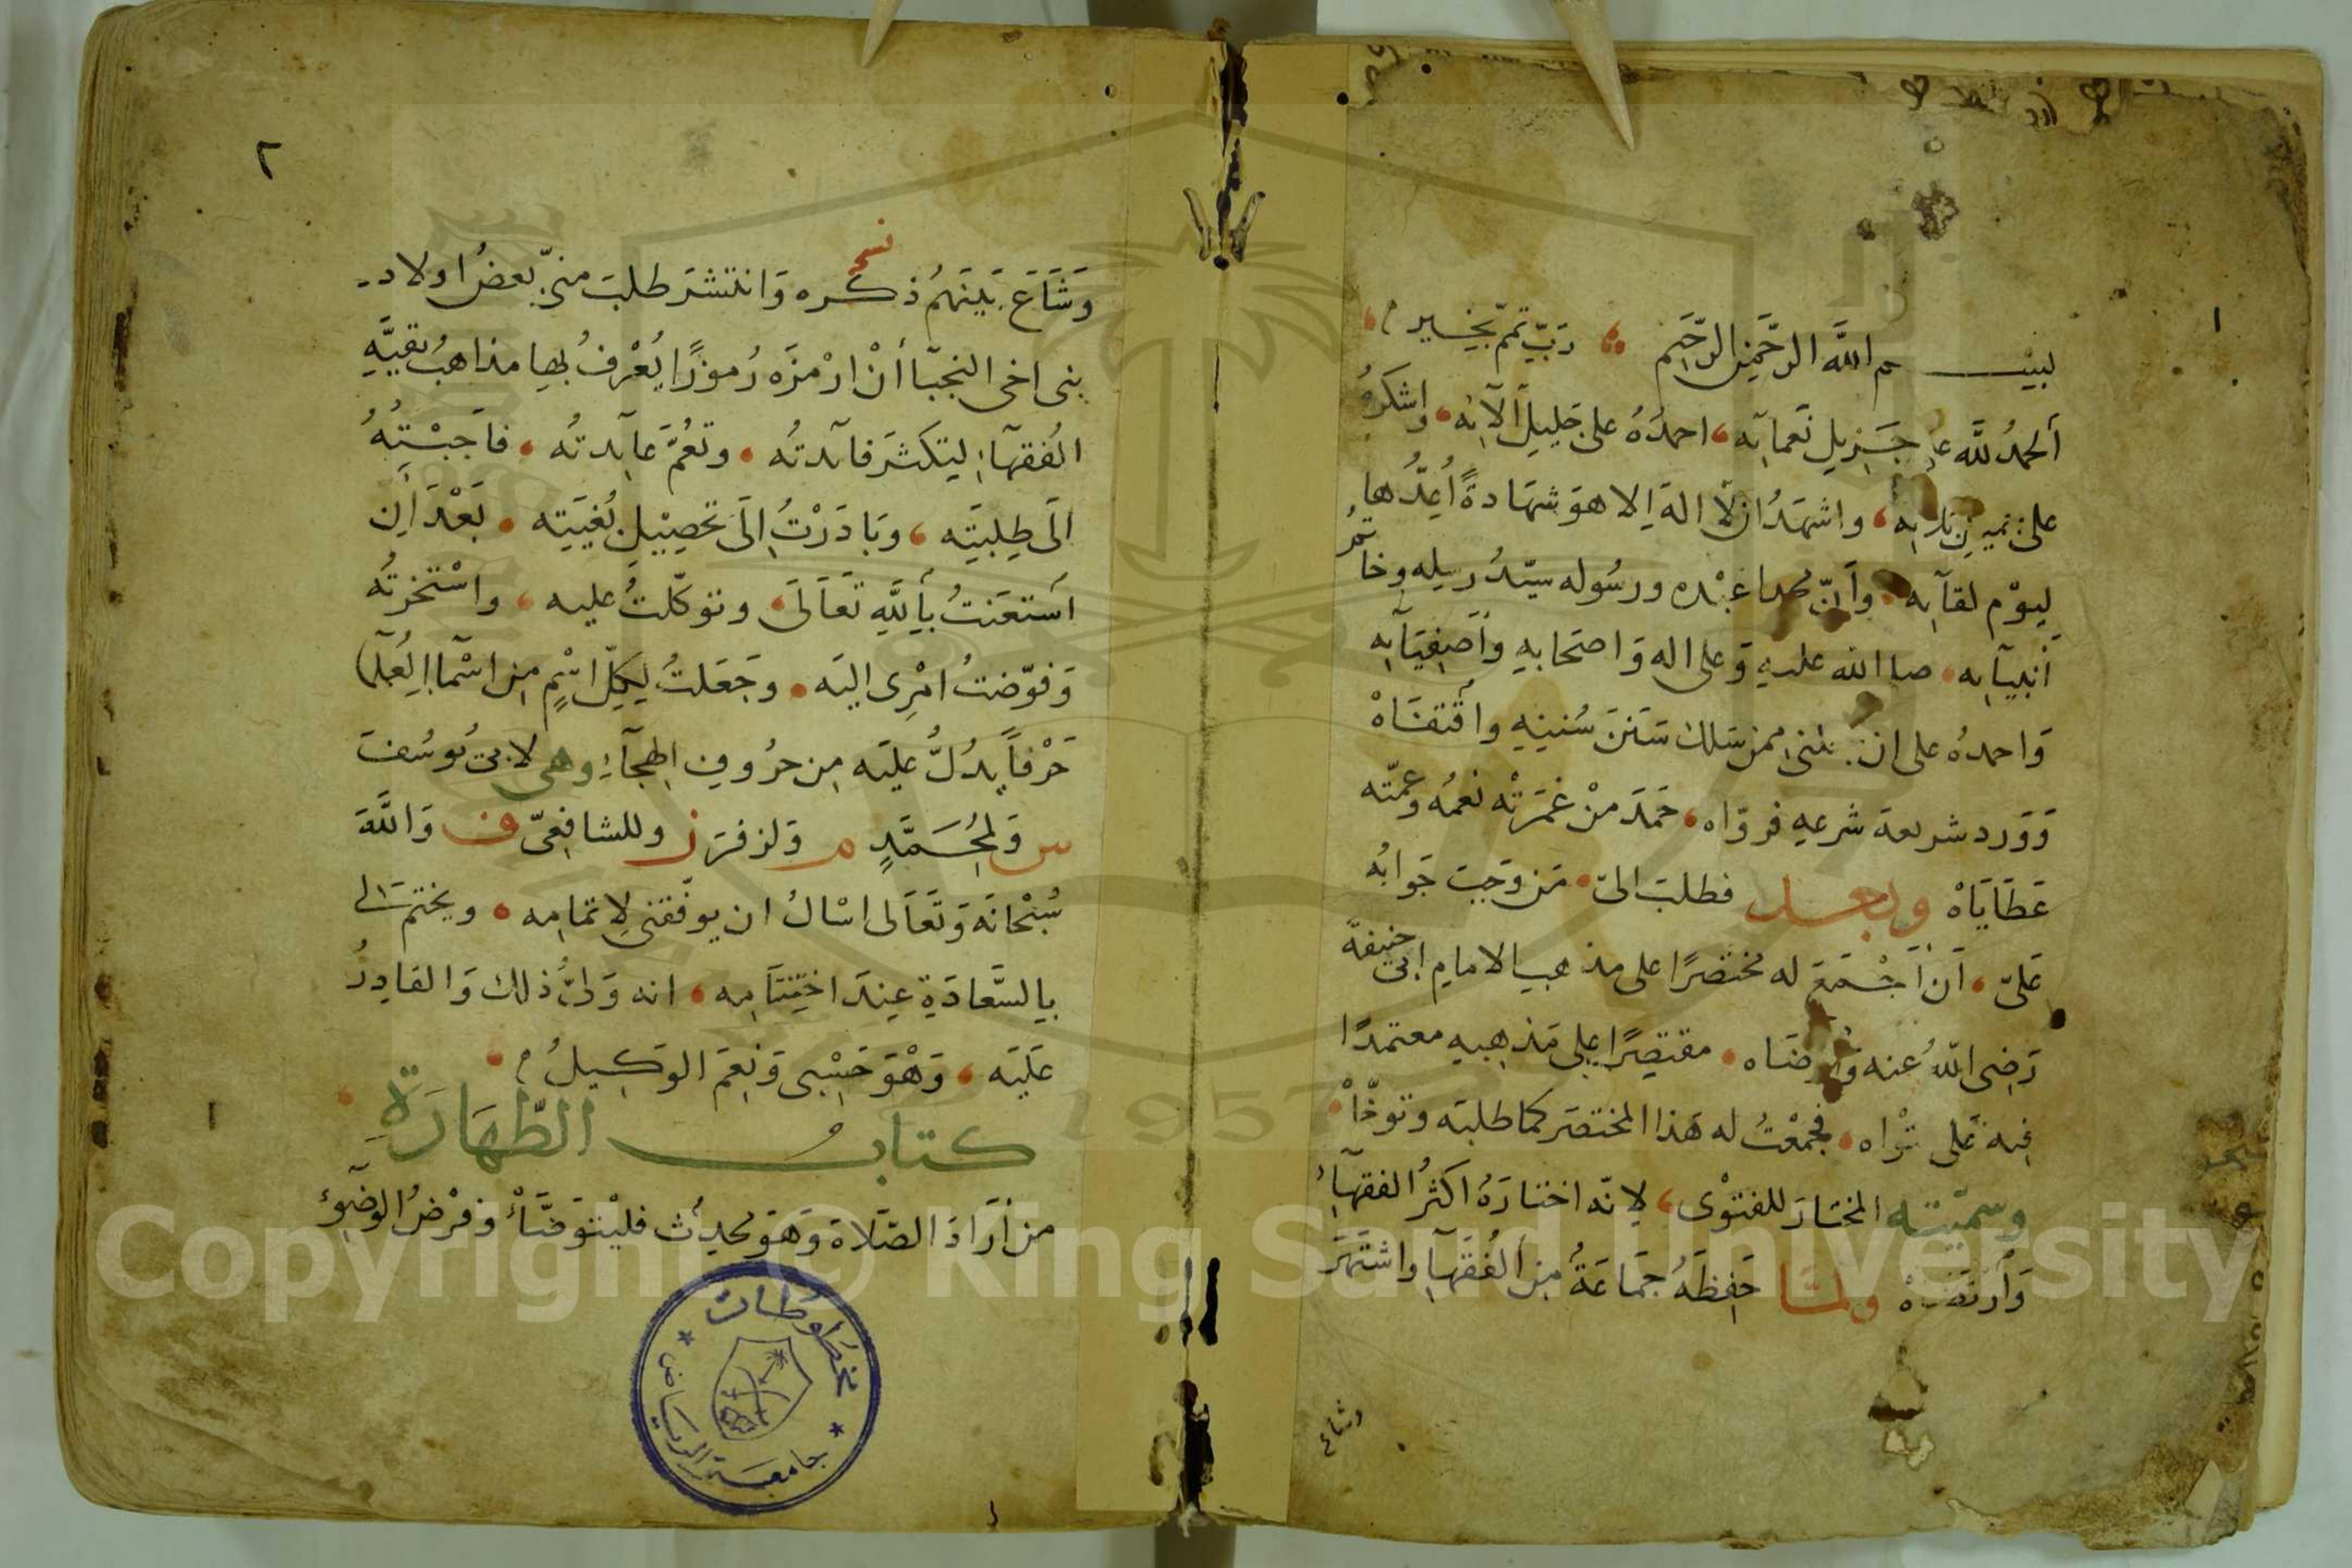 ١
بسم الله الرَّحمن الرَّحيم رَبِّ تمّم بخير
ألحمدُ للَّه على جَزيل نَعمآيه احمدُهُ على جَليل ألآئه واشكرُهُ
على واشهدُ ان لَّا اله اِلا هوَ شهادةً أعِدُّها
ليوْم لقآيه وأنّ محمدا عبْده ورسُوله سيّدُ رسله وخاتمُ
أنبيآيه صلى الله عليهِ وَعلى اله وَاصحابهِ وأصفيَآيه
وَاحمدُه على ان ممن سَلك سَنَنَ سُنَنِهِ وأقتفَاهْ
وَوَرد شريعة شرعهِ فروّاه حَمدَ منْ غَمَرَتْه نعمُه وعمّته
عَطَايَاهْ وبعد فطلبَ الىّ مَن وَجبَ جَوابُه
عَلىّ أن أجْمَعَ له مختصَرًا على مذهبِ الامامِ ابى حنيفة
رَضِى اللهُ عنه وَأرضَاه مقتصِرًا على مَذهبهِ معتمدًا
فيه عَلى فتْواه فجمعْتُ له هَذا المختصَر كما طلبَه وتوخّاهْ
وسمّيته المختارَ للفتوْى لانّه اختارَهُ اكثرُ الفقهآءِ
وَأرتضَاهْ ولمّا حَفِظَهُ جمَاعَةٌ مِن الفُقهآءِ واشتَهَرَ
وشاع
٢
وَشَاعَ بَينَهُم ذكره وَانتشرَ طلبَ منّى بعضُ اولاد
نسخ
بنى اخى النجبآ أنْ ارْمزَه رُموزًا يُعْرفُ بها مذاهبُ بقيَّهِ
الفُقهآءِ ليَكثرَ فآئدتُه وتعُمَّ عآئدتُه فاَجبْتهُ
الَى طِلبَتِه وبَادَرْتُ اِلَى تحصِيْلِ بُغيَتِه بَعْدَ أن
أستعَنتُ بأللَّهِ تَعَالَى وتوَكّلتُ عليه واسْتخرتُه
وَفوّضتُ امْرِى اليَه وجَعَلتُ لِكلّ اسْمٍ مِن اسْمآءِ العُلمآ
حَرْفاً يدُلُّ عليَه مِن حرُوفِ الهجآءِ وهى لابىْ يُوسُفَ
س وَلمحُمَّدٍ م وَلزفرَ ز وللشافِعىّ ف وَاللَّهَ
سُبْحَانَه وَتَعَالى اسْالُ ان يوفّقنى لِاتمامِه ويختمَ لى
بِالسَّعادَةِ عِندَ اختِتَامِه انه وَلىُّ ذلك وَالقادِرُ
عَلَيَه وَهْوَ حَسْبى وَنِعَمَ الوَكِيلُ
كتابُ الطّهَارَةِ
من أرَادَ الصّلاة وَهوَ محدِث فليْتوَضَّأْ وَفرْضُ الوضوءِ
مخطوطات
جامعة الرياض
Copyright © King Saud University
1957